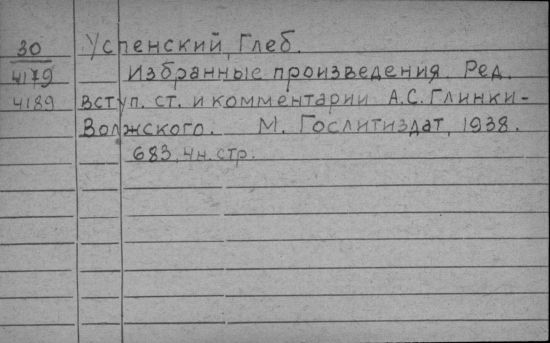 30 Успенский, Глеб.
4179 Избранные произведения. Ред.
4189 вступ. ст. и комментарии А.С. Глинки-
Волжского. М. Гослитиздат, 1938.
683, 4 н. стр.